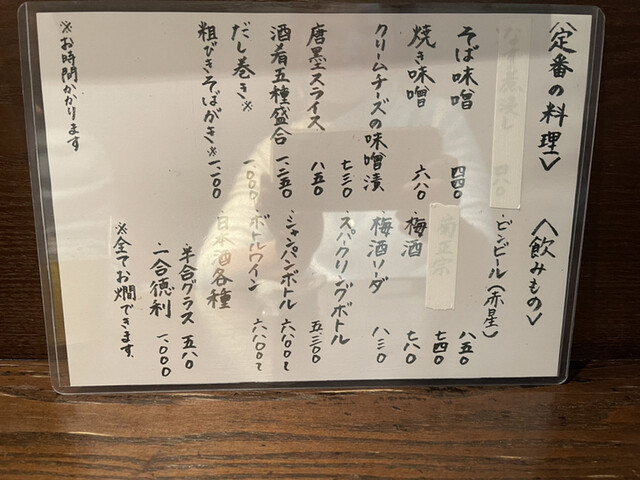 〈定番の料理〉
そば味噌 四四〇
焼き味噌 六八〇
クリームチーズの味噌漬 七三〇
唐墨スライス 八五〇
酒肴五種盛合 一、二五〇
だし巻き※ 一、〇〇〇
粗びきそばがき※ 一、一〇〇
※お時間かかります
〈飲みもの〉
・ビンビール(赤星) 八五〇
菊正宗 七四〇
・梅酒 七八〇
・梅酒ソーダ 八三〇
・スパークリングボトル 五、三〇〇
・シャンパンボトル 六八〇〇〜
・ボトルワイン 六八〇〇〜
・日本酒各種
・半合グラス 五八〇
・一合徳利 一、〇〇〇
※全てお燗できます。